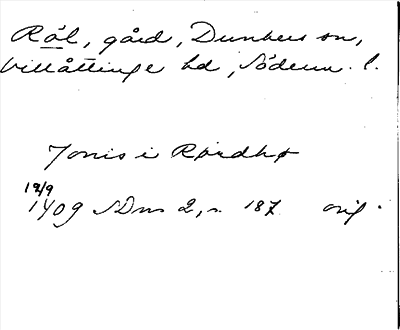 Rål, gård, Dunkers sn,
Villåttinge hd, Söderm. l.
Jonis i Rørdhø
19/9
1409 SDns 2, s. 187 orig.